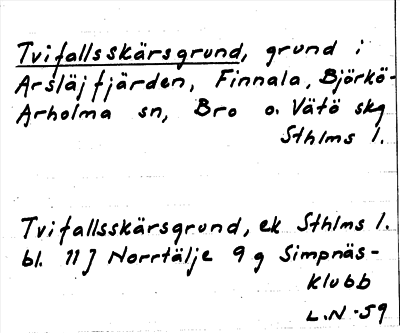 Tvifallsskärsgrund, grund i
Arsläjfjärden, Finnala, Björkö-
Arholma sn, Bro o. Vätö skg
Sthlms l.
Tvifallsskärsgrund, ek Sthlms l.
bl. 11 J Norrtälje 9 g Simpnäs-
klubb
L.N-59